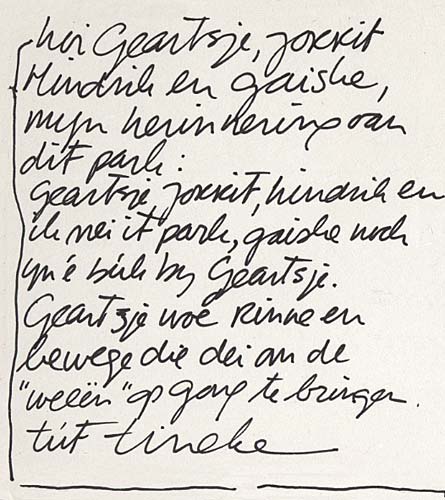 hoi Geartsje, Jorrit
Hindrik en gaiske,
mijn herinnering aan
dit park:
Geartsje, Jorrit, hindrik en
ik nei it park, gaiske noch
yn'e búk by Geartsje.
Geartsje woe rinne en
bewege die dei om de
"weeën" op gong te bringen.
tút tineke